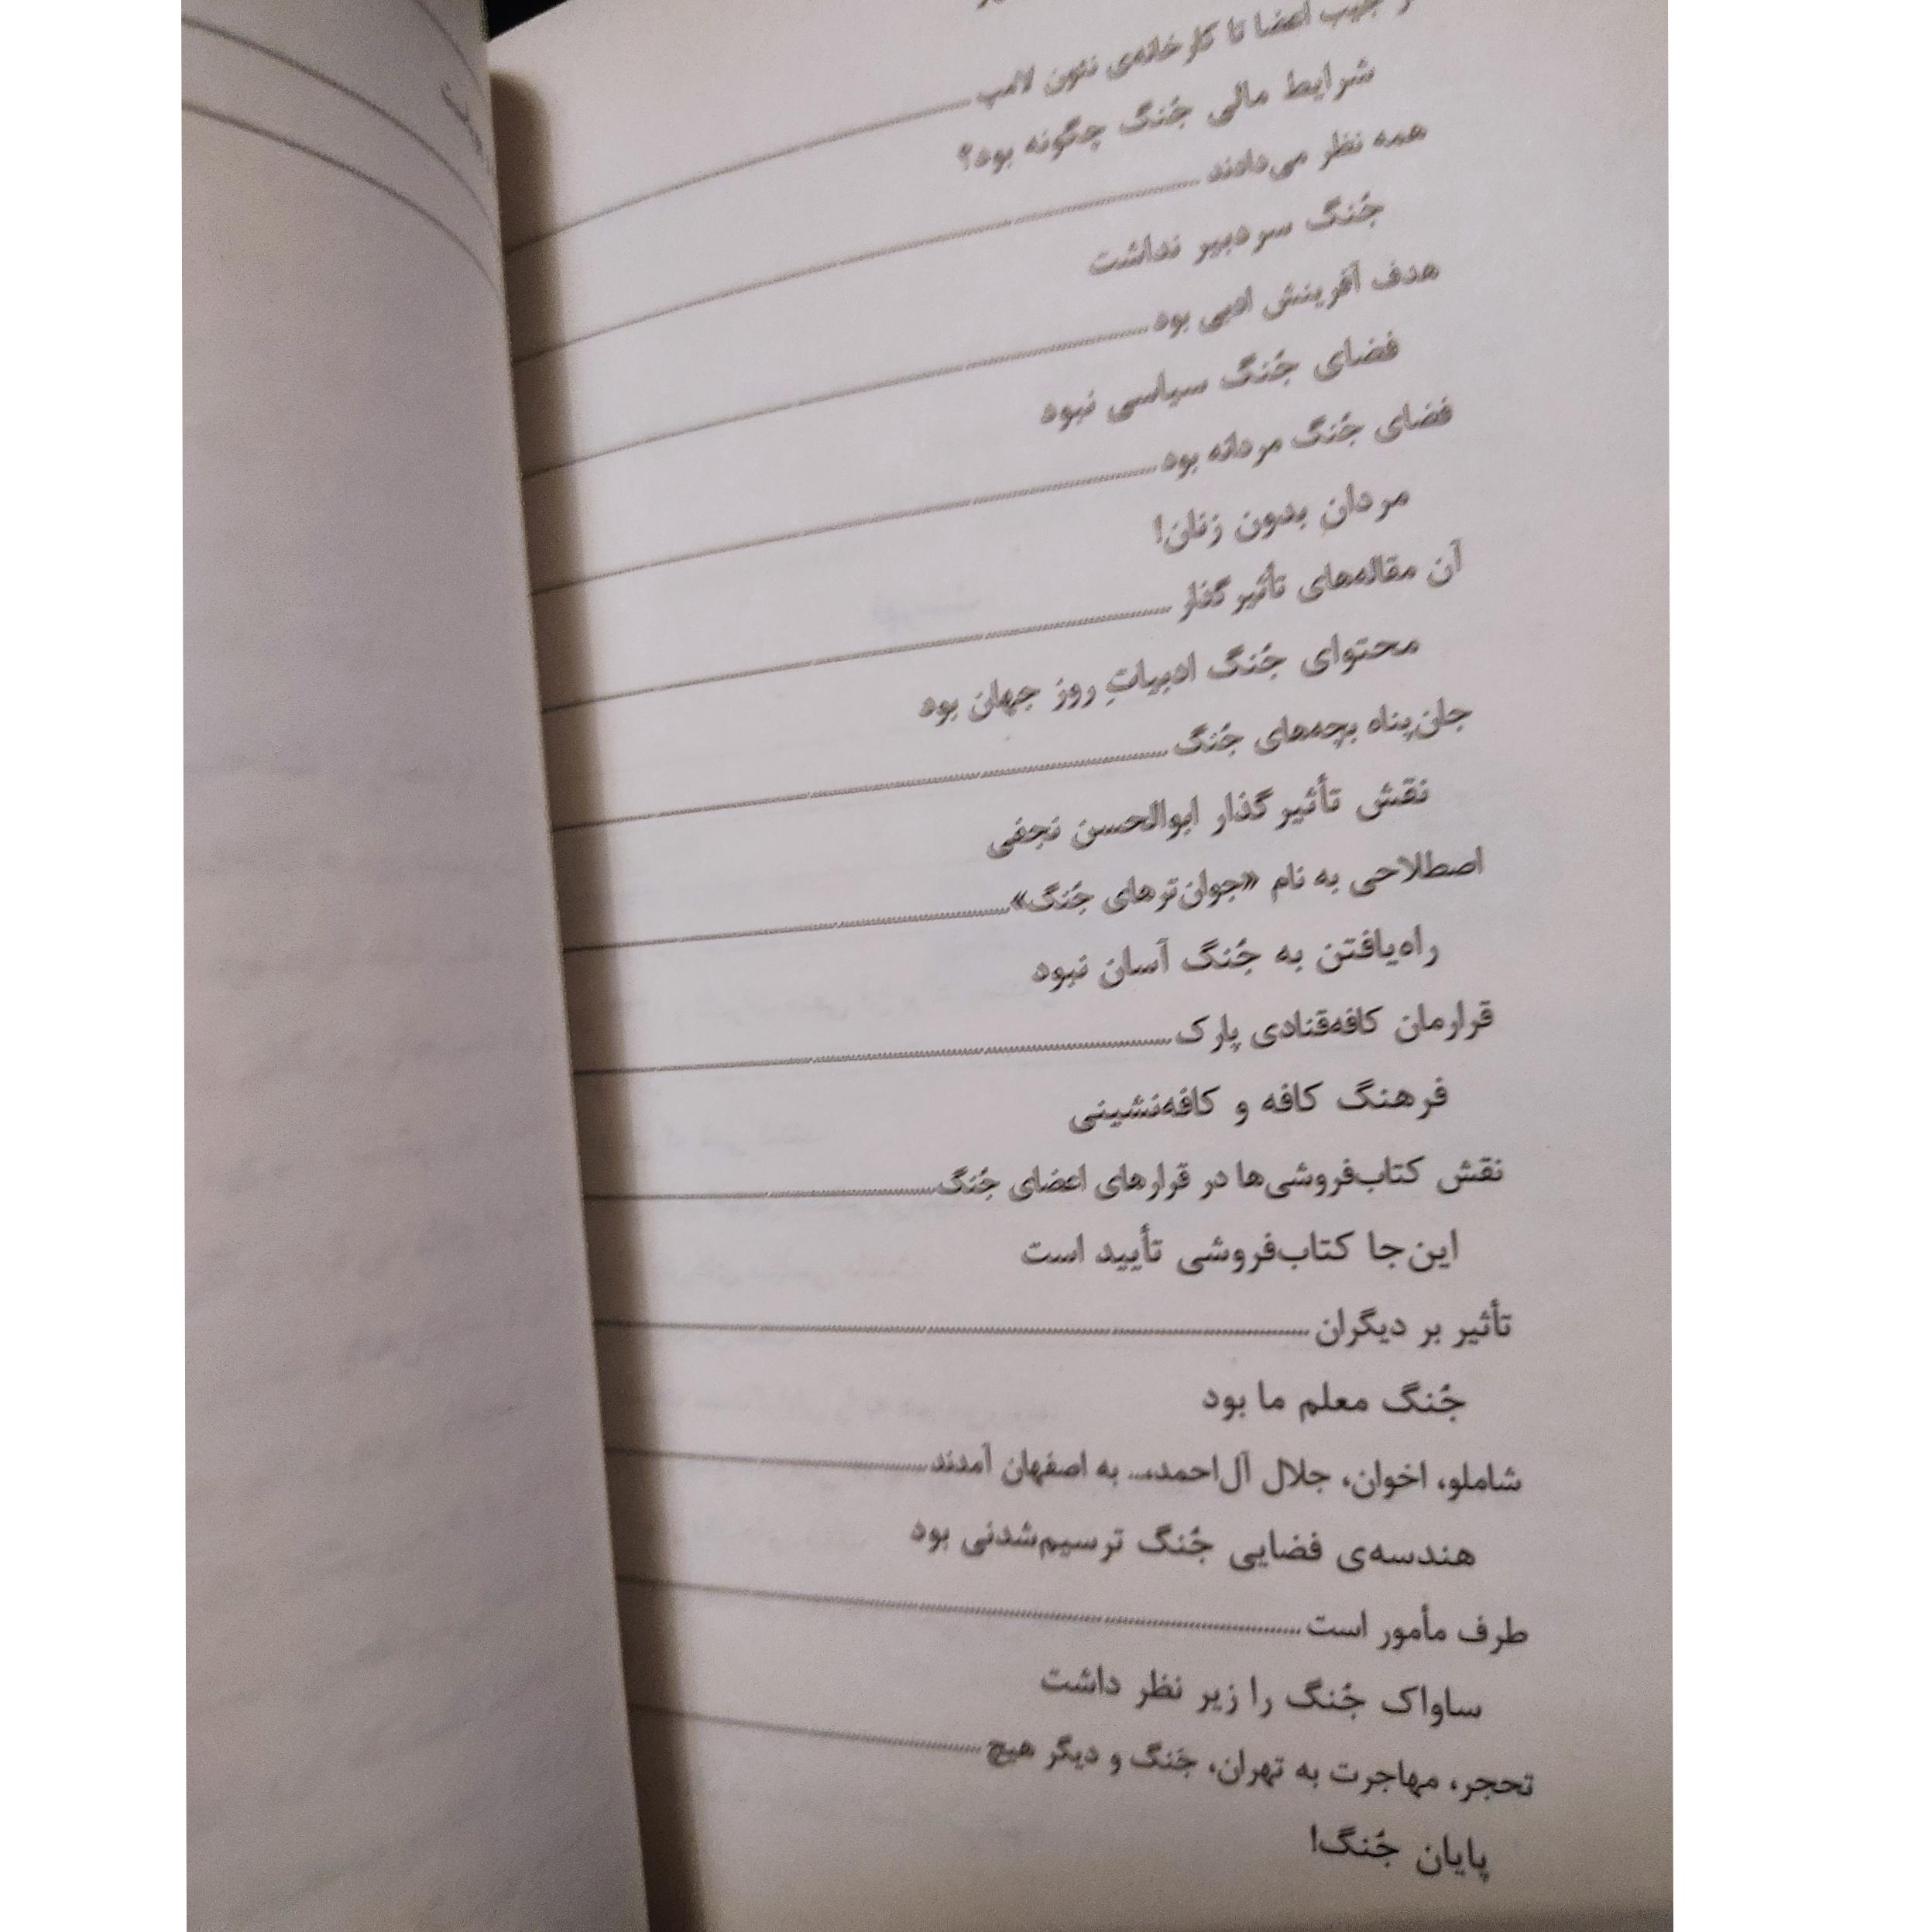 جیب اعضا تا کارخانه‌ی نئون لامپ
شرایط مالی جُنگ چگونه بود؟
همه نظر می‌دادند
جُنگ سردبیر نداشت
هدف آفرینش ادبی بود
فضای جُنگ سیاسی نبود
فضای جُنگ مردانه بود
مردانِ بدون زنان!
آن مقاله‌های تأثیرگذار
محتوای جُنگ ادبیاتِ روز جهان بود
جان‌پناه بچه‌های جُنگ
نقش تأثیرگذار ابوالحسن نجفی
اصطلاحی به نام «جوان‌ترهای جُنگ»
راه‌یافتن به جُنگ آسان نبود
قرارمان کافه‌قنادی پارک
فرهنگ کافه و کافه‌نشینی
نقش کتاب‌فروشی‌ها در قرارهای اعضای جُنگ
این‌جا کتاب‌فروشی تأیید است
تأثیر بر دیگران
جُنگ معلم ما بود
شاملو، اخوان، جلال آل‌احمد،... به اصفهان آمدند
هندسه‌ی فضایی جُنگ ترسیم‌شدنی بود
طرف مأمور است
ساواک جُنگ را زیر نظر داشت
تحجر، مهاجرت به تهران، جَنگ و دیگر هیچ
پایان جُنگ!